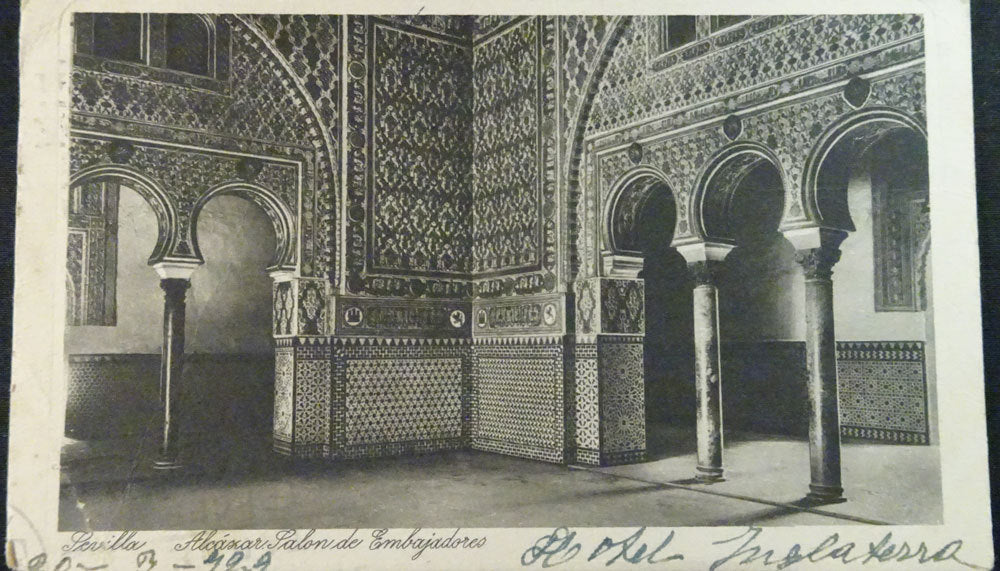 Sevilla Alcázar. Salon de Embajadores
Hotel Inglaterra